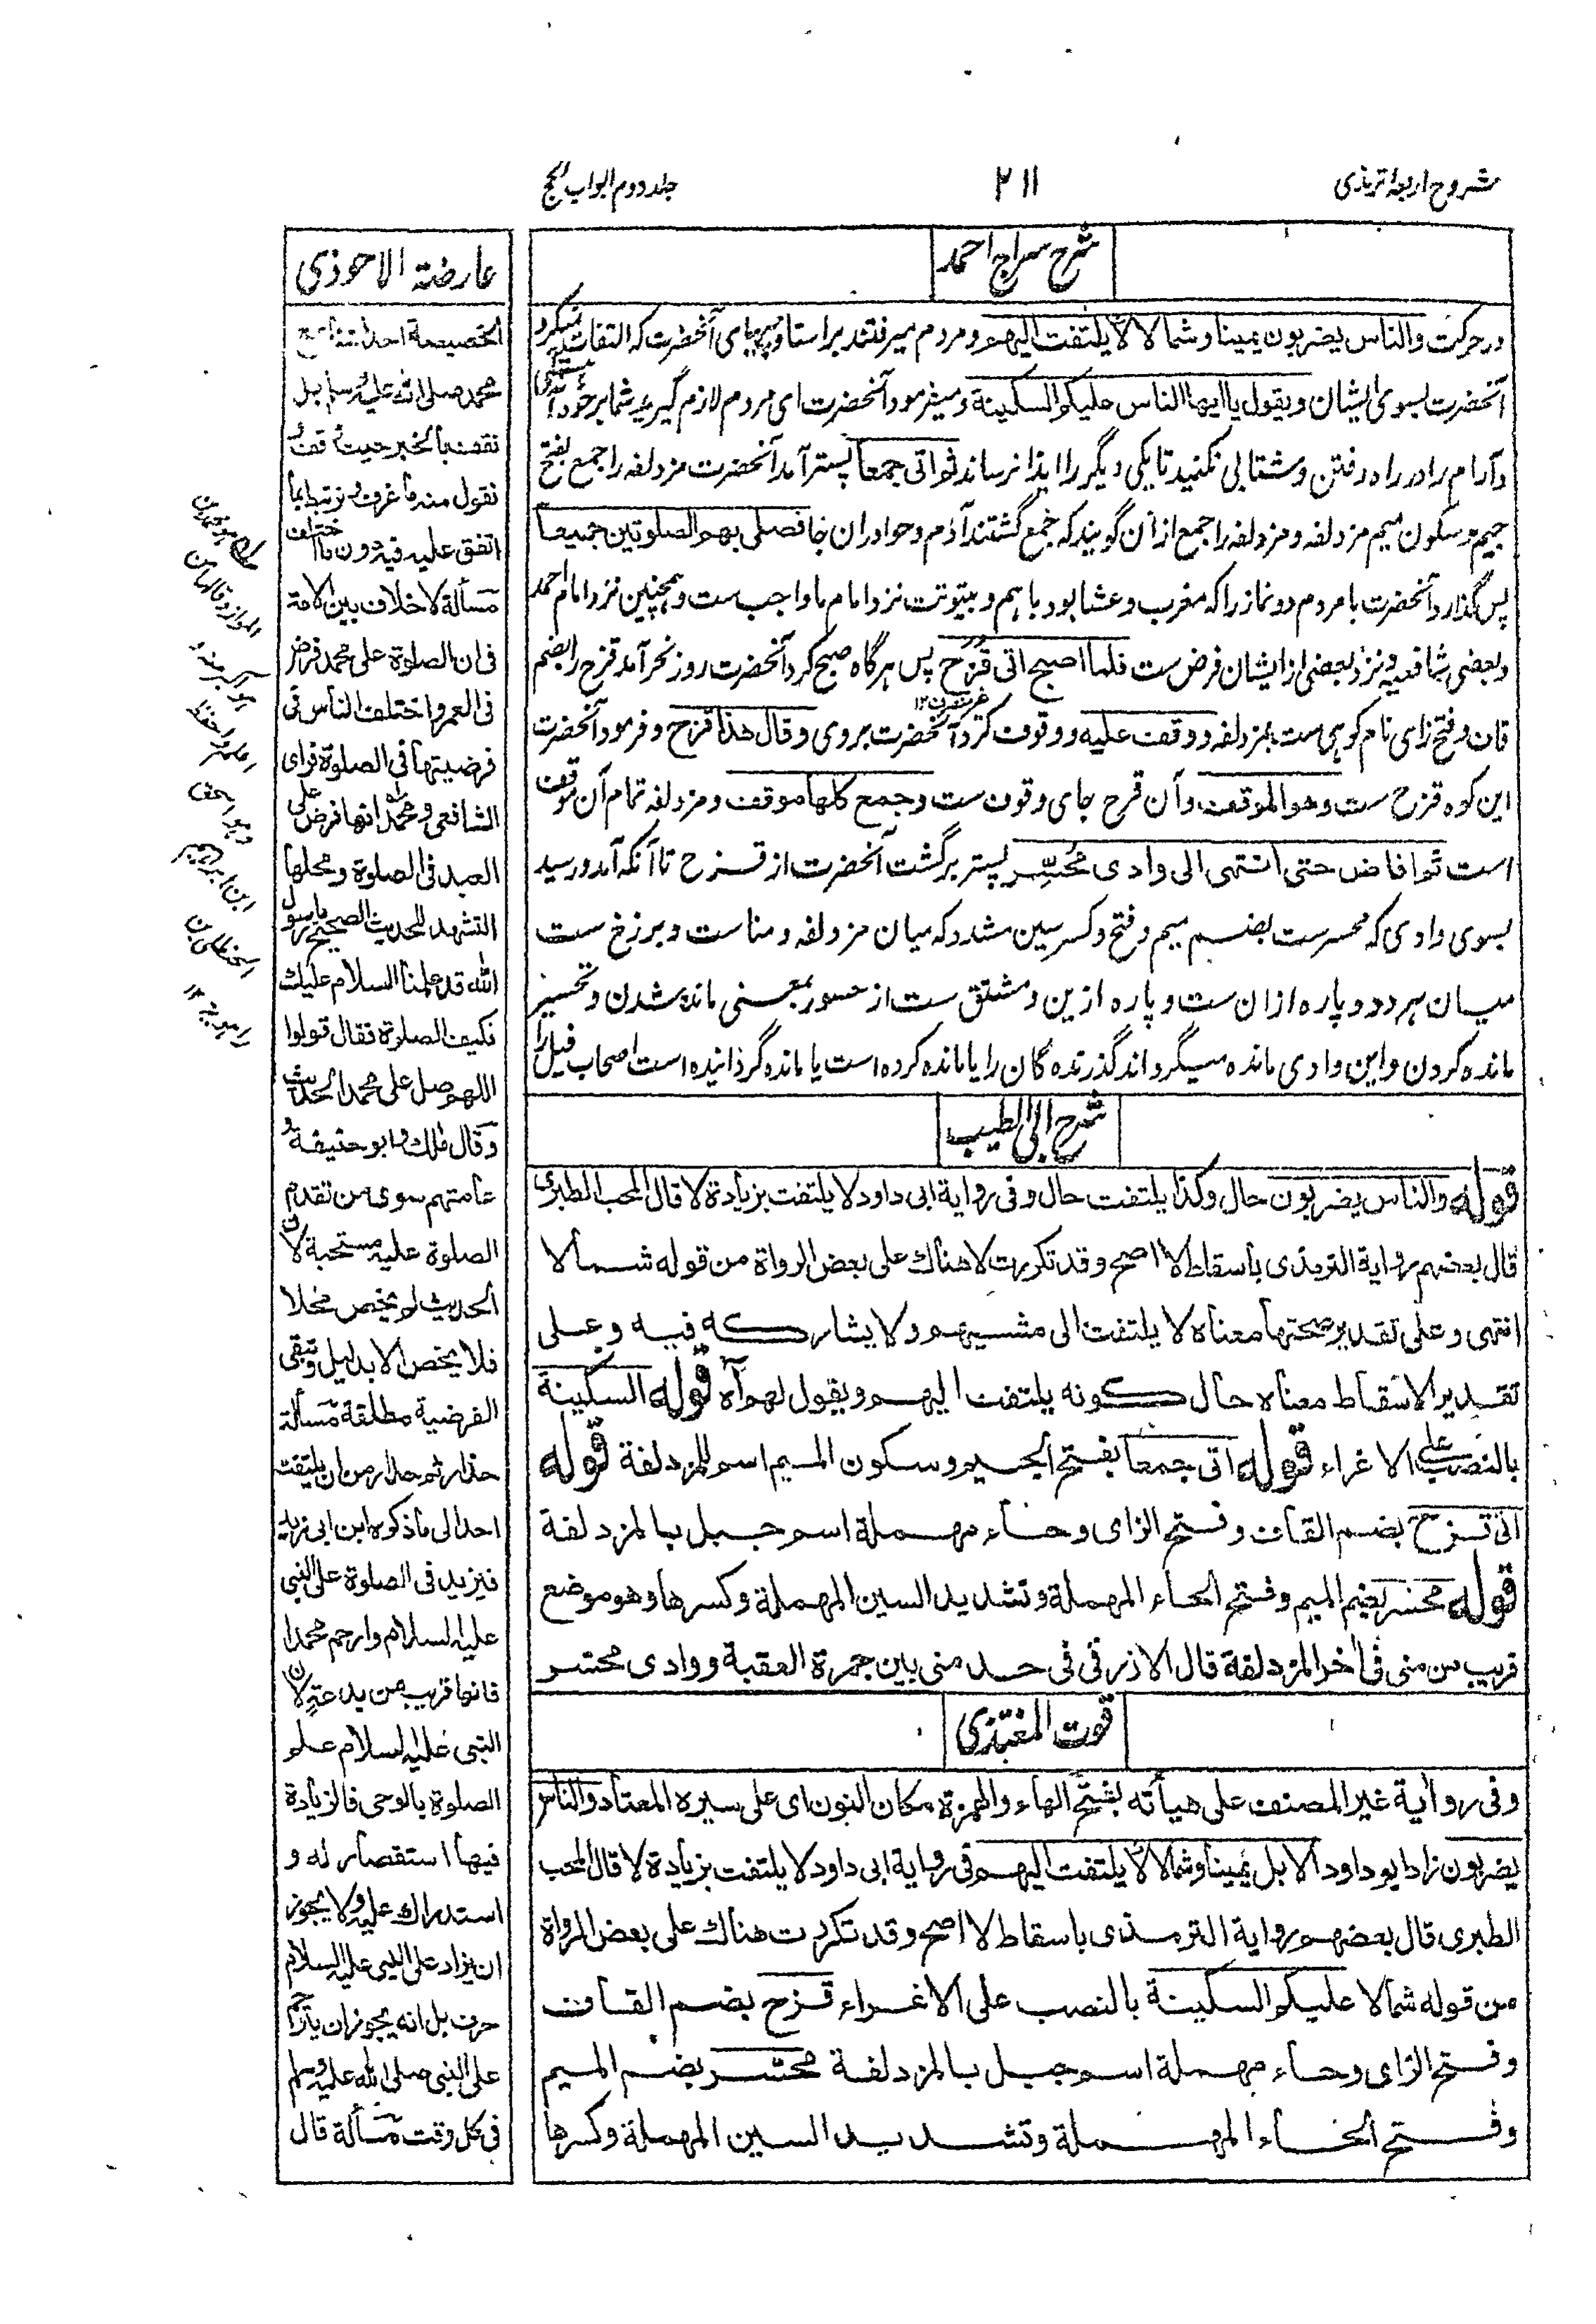 شروح اربعۂ ترمذی
٢١١
جلد دوم ابواب الحج
شرح سراج احمد
در حرکت والناس يضربون يمينا وشمالا لا يلتفت اليهم ومردم میرفتند براستا وچپهای آنحضرت که التفات نمیکرد
آنحضرت بسوی ایشان ويقول يا ايها الناس عليكم السكينة ومیفرمود آنحضرت ای مردم لازم گیرید شما بر خود
وآرام را در راه رفتن وشتابی نکنید تا یکی دیگر را ایذا نرساند ثم اتى جمعا پستر آمد آنحضرت مزدلفه را جمع بفتح
جیم وسکون میم مزدلفه ومزدلفه را جمع ازان گویند که جمع گشتند آدم وحوا دران جا فصلى بهم الصلوتين جميعا
پس گذارد آنحضرت با مردم دو نماز را که مغرب وعشا بود با هم وبیتوتت نزد امام ما واجب ست وهمچنین نزد امام احمد
وبعضی شافعیه ونزد بعضی از ایشان فرض ست فلما اصبح اتى قزح پس هرگاه صبح کرد آنحضرت روز نحر آمد قزح را بضم
قاف وفتح زای نام کوهی ست بمزدلفه ووقف عليه ووقوف کرد آنحضرت بروی وقال هذا قزح وفرمود آنحضرت
این کوه قزح ست وهو الموقف وآن قزح جای وقوف ست وجمع كلها موقف ومزدلفه تمام آن موقف
است ثم افاض حتى انتهى الى وادى محسّر پستر برگشت آنحضرت از قزح تا آنکه آمد ورسید
بسوی وادی که محسرست بضم میم وفتح وکسر سین مشدد که میان مزدلفه ومناست وبرزخ ست
میان هر دو وپاره ازان ست وپاره ازین ومشتق ست از حسور بمعنی مانده شدن وتحسیر
مانده کردن واین وادی مانده میگرداند گذرنده گان را یا مانده کرده است یا مانده گردانیده است اصحاب فیل را
شرح ابی الطیب
قوله والناس يضربون حال وكذا يلتفت حال وفى رواية ابى داود لا يلتفت بزيادة لا قال المحب الطبرى
قال بعضهم رواية الترمذى باسقاط لا اصح وقد تكررت لا هناك على بعض الرواة من قوله شمالا
انتهى وعلى تقدير صحتها معناه لا يلتفت الى مشيهم ولا يشاركه فيه وعلى
تقدير الاسقاط معناه حال كونه يلتفت اليهم ويقول لهم آه قوله السكينة
بالنصب على الاغراء قوله اتى جمعا بفتح الجيم وسكون الميم اسم للمزدلفة قوله
اتى قزح بضم القاف وفتح الزاى وحاء مهملة اسم جبل بالمزدلفة
قوله محسر بضم الميم وفتح الحاء المهملة وتشديد السين المهملة وكسرها وهو موضع
قريب من منى فى آخر المزدلفة قال الازرقى فى حد منى بين جمرة العقبة ووادى محسر
قوت المغتذی
وفى رواية غير المصنف على هيأته بفتح الهاء والهمزة مكان النون اى على سيره المعتاد والناس
يضربون زاد ابو داود الابل يمينا وشمالا لا يلتفت اليهم فى رواية ابى داود لا يلتفت بزيادة لا قال المحب
الطبرى قال بعضهم رواية الترمذى باسقاط لا اصح وقد تكررت هناك على بعض الرواة
من قوله شمالا عليكم السكينة بالنصب على الاغراء قزح بضم القاف
وفتح الزاى وحاء مهملة اسم جبل بالمزدلفة محسّر بضم الميم
وفتح الحاء المهملة وتشديد السين المهملة وكسرها
عارضة الاحوذی
محمد صلى الله عليه وسلم بل
نقول منه ما عرف ونرتبط بما
اتفق عليه فيه دون ما اختلف
مسألة لا خلاف بين الامة
فى ان الصلوة على محمد فرض
فى العمر واختلف الناس فى
فرضيتها فى الصلوة فراى
الشافعى ومحمد انها فرض على
العبد فى الصلوة ومحلها
التشهد للحديث الصحيح يا رسول
الله قد علمنا السلام عليك
فكيف الصلوة فقال قولوا
اللهم صل على محمد الحديث
وقال مالك وابو حنيفة و
عامتهم سوى من تقدم
الصلوة عليه مستحبة لان
الحديث لم يخص محلا
فلا يخص الا بدليل وتبقى
الفرضية مطلقة مسألة
حذار ثم حذار من ان يلتفت
احد الى ما ذكره ابن ابى زيد
فيزيد فى الصلوة على النبى
عليه السلام وارحم محمدا
فانها قريب من بدعة لان
النبى عليه السلام علم
الصلوة بالوحى فالزيادة
فيها استقصار له و
استدراك عليه ولا يجوز
ان يزاد على النبى عليه السلام
حرف بل انه يجوز ان يترحم
على النبى صلى الله عليه وسلم
فى كل وقت مسألة قال